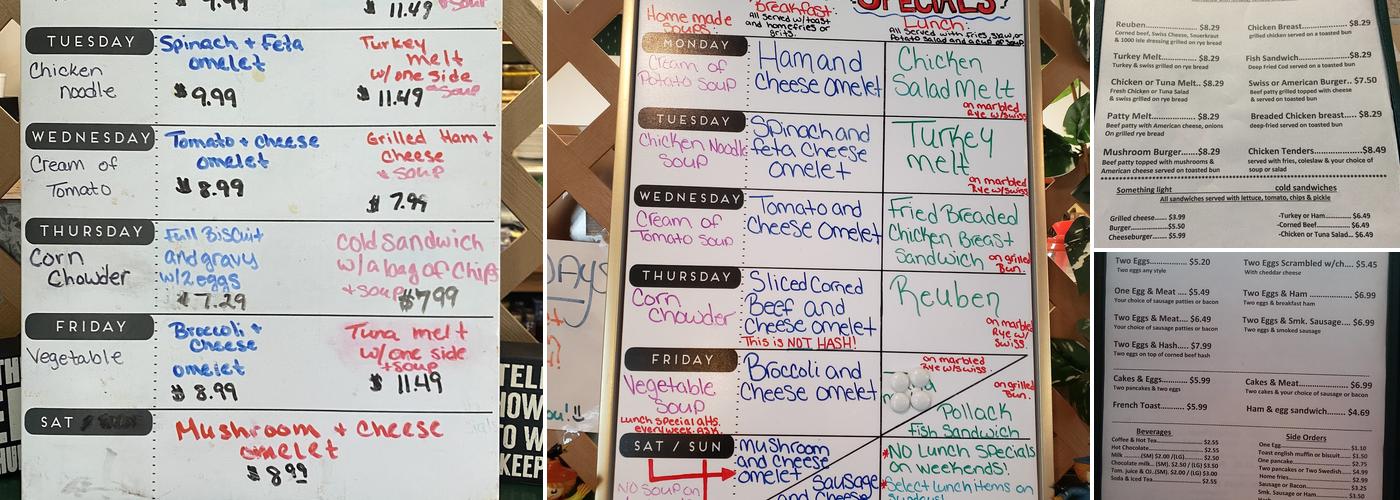 9.99
11.49
TUESDAY
Spinach + Feta
omelet
Turkey
melt
w/one side
+soup
Chicken
noodle
$9.99
$11.49
WEDNESDAY
Tomato + cheese
omelet
Grilled Ham +
cheese
+ soup
Cream of
Tomato
$8.99
$7.99
THURSDAY
Full Biscuit
and gravy
w/2 eggs
cold sandwich
w/a bag of chips
+ soup $7.99
Corn
Chowder
$7.29
FRIDAY
Broccoli +
cheese
omelet
Tuna melt
w/one side
+soup
Vegetable
$8.99
$11.49
SAT
Mushroom + cheese
omelet
$8.99
SPECIALS
Home made
Soups:
Breakfast:
All served w/toast
and homefries or
grits.
Lunch:
All served with fries, slaw, or
Potato Salad and a cup of soup
MONDAY
Cream of
Potato Soup
Ham and
Cheese omelet
Chicken
Salad Melt
on marbled
Rye w/swiss
TUESDAY
Chicken Noodle
Soup
Spinach and
feta Cheese
omelet
Turkey
melt
on marbled
Rye w/swiss
WEDNESDAY
Cream of
Tomato Soup
Tomato and
Cheese omelet
Fried Breaded
Chicken Breast
Sandwich on grilled
Bun.
THURSDAY
Corn
Chowder
Sliced Corned
Beef and
Cheese omelet
This is NOT HASH!
Reuben
on marble
Rye w/
Swiss
FRIDAY
Vegetable
Soup
Lunch special alts.
every week. ASK
Broccoli and
Cheese omelet
on marbled
Rye w/swiss
on grilled
Bun.
Pollack
fish Sandwich
SAT / SUN
No Soup on
mushroom
and Cheese
omelet
Sausage
and Cheese
*NO Lunch Specials
on weekends!
*Select lunch items on
Sundays!
Reuben $8.29
Corned beef, Swiss Cheese, Sauerkraut
& 1000 isle dressing grilled on rye bread
Turkey Melt $8.29
Turkey & swiss grilled on rye bread
Chicken or Tuna Melt.. $8.29
Fresh Chicken or Tuna Salad
& swiss grilled on rye bread
Patty Melt $8.29
Beef patty with American cheese, onions
On grilled rye bread
Mushroom Burger $8.29
Beef patty topped with mushrooms &
American cheese served on toasted bun
Chicken Breast $8.29
grilled chicken served on a toasted bun
Fish Sandwich $8.29
Deep Fried Cod served on a toasted bun
Swiss or American Burger.. $7.50
Beef patty grilled topped with cheese
& served on toasted bun
Breaded Chicken breast.... $8.29
deep-fried served on toasted bun
Chicken Tenders $8.49
served with fries, coleslaw & your choice of
soup or salad
Something light
cold sandwiches
All sandwiches served with lettuce, tomato, chips & pickle
Grilled cheese...... $3.99
Burger $5.50
Cheeseburger $5.99
-Turkey or Ham $6.49
-Corned Beef $6.49
-Chicken or Tuna Salad... $6.49
Two Eggs $5.20
Two eggs any style
One Egg & Meat .... $5.49
Your choice of sausage patties or bacon
Two Eggs & Meat $6.49
Your choice of sausage patties or bacon
Two Eggs & Hash $7.99
Two eggs on top of corned beef hash
Cakes & Eggs $5.99
Two pancakes & two eggs
French Toast $5.99
Two Eggs Scrambled w/ch.... $5.45
With cheddar cheese
Two Eggs & Ham $6.99
Two eggs & breakfast ham
Two Eggs & Smk. Sausage.... $6.99
Two eggs & smoked sausage
Cakes & Meat $6.99
Two cakes & your choice of sausage or bacon
Ham & egg sandwich $4.69
Beverages
Coffee & Hot Tea $2.55
Hot Chocolate $2.55
Milk (SM) $2.00 /(LG) $2.50
Chocolate milk... (SM) $2.50 / (LG) $3.50
Tom. juice & OJ..(SM) $2.00 /(LG) $3.00
Soda & Iced Tea $2.55
Side Orders
One Egg $1.10
Toast english muffin or biscuit $1.50
One pancake $2.75
Two pancakes or Two Swedish $4.99
Home fries $2.99
Sausage or Bacon $3.25
Smk. Sausage or Ham